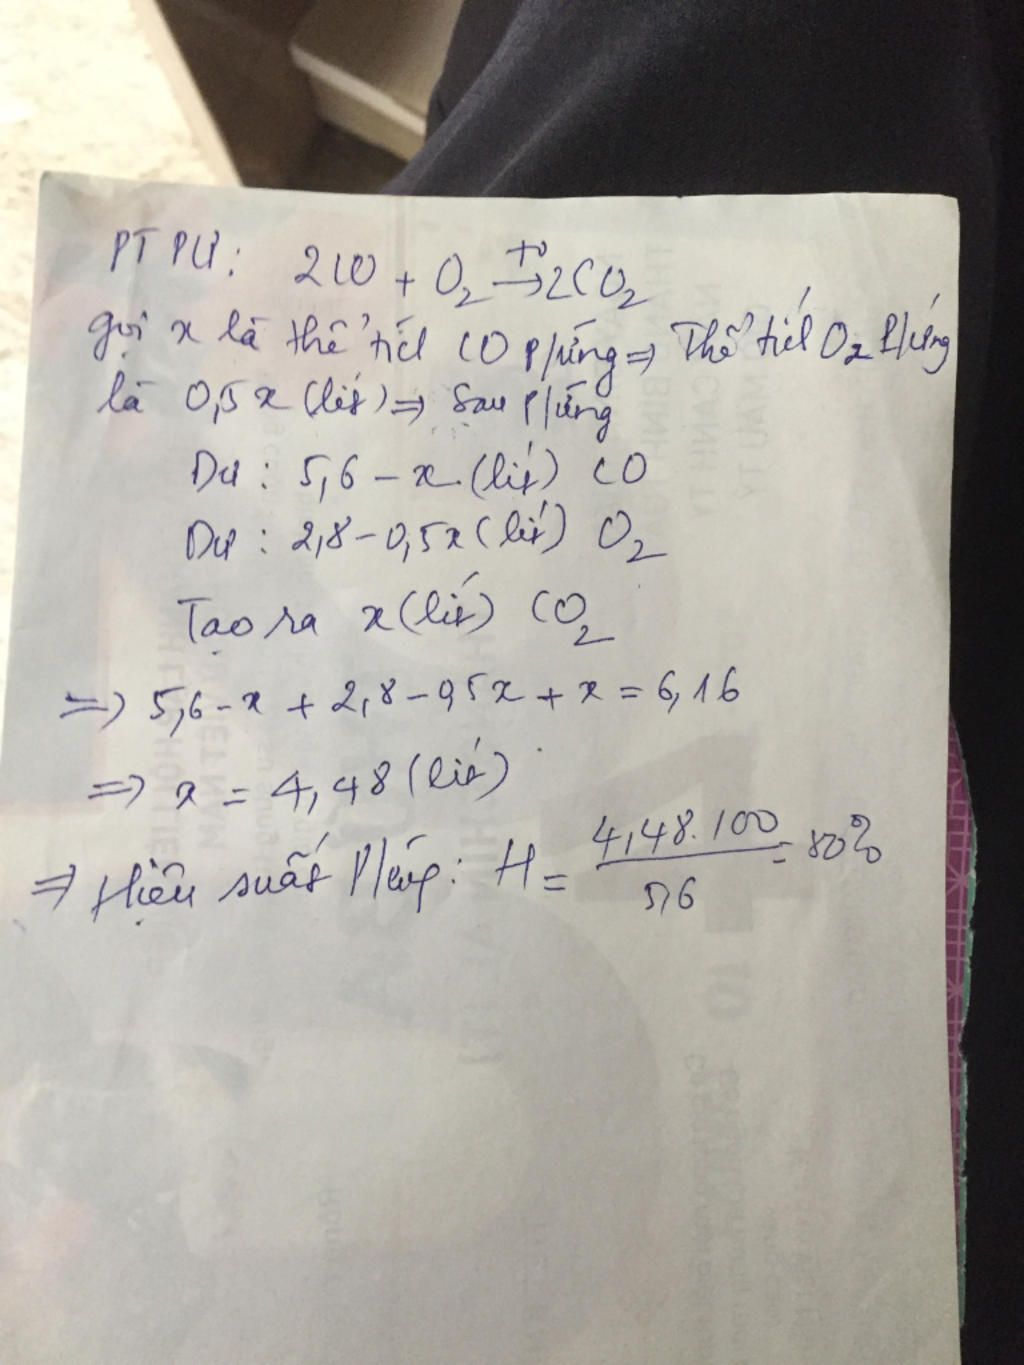 PT PƯ: 2CO + O2 t° → 2CO2
gọi x là thể tích CO p/ứng => Thể tích O2 P/ứng
là 0,5x (lít) => Sau P/ứng
Dư : 5,6 - x (lít) CO
Dư : 2,8 - 0,5x (lít) O2
Tạo ra x (lít) CO2
=> 5,6 - x + 2,8 - 0,5x + x = 6,16
=> x = 4,48 (lít)
=> Hiệu suất P/ứng: H = 4,48.100 / 5,6 = 80%